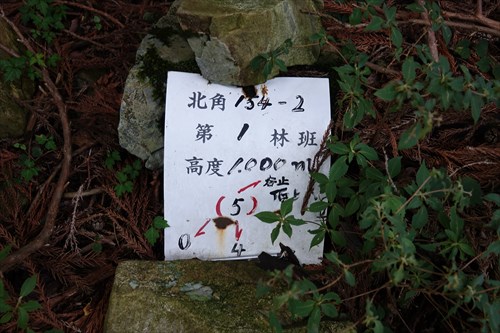 北角134-2
第 1 林班
高度1.000m
(5)
0 4